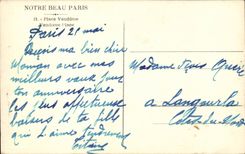 NOTRE BEAU PARIS
Place Vendôme
Vendome Place
Paris 21 mai
Reçois ma bien chère
Maman avec mes
meilleurs vœux pour
ton anniversaire
les plus affectueux
baisers de ta fille
qui t'aime tendrement
Madame
à Langourla
Côtes du Nord